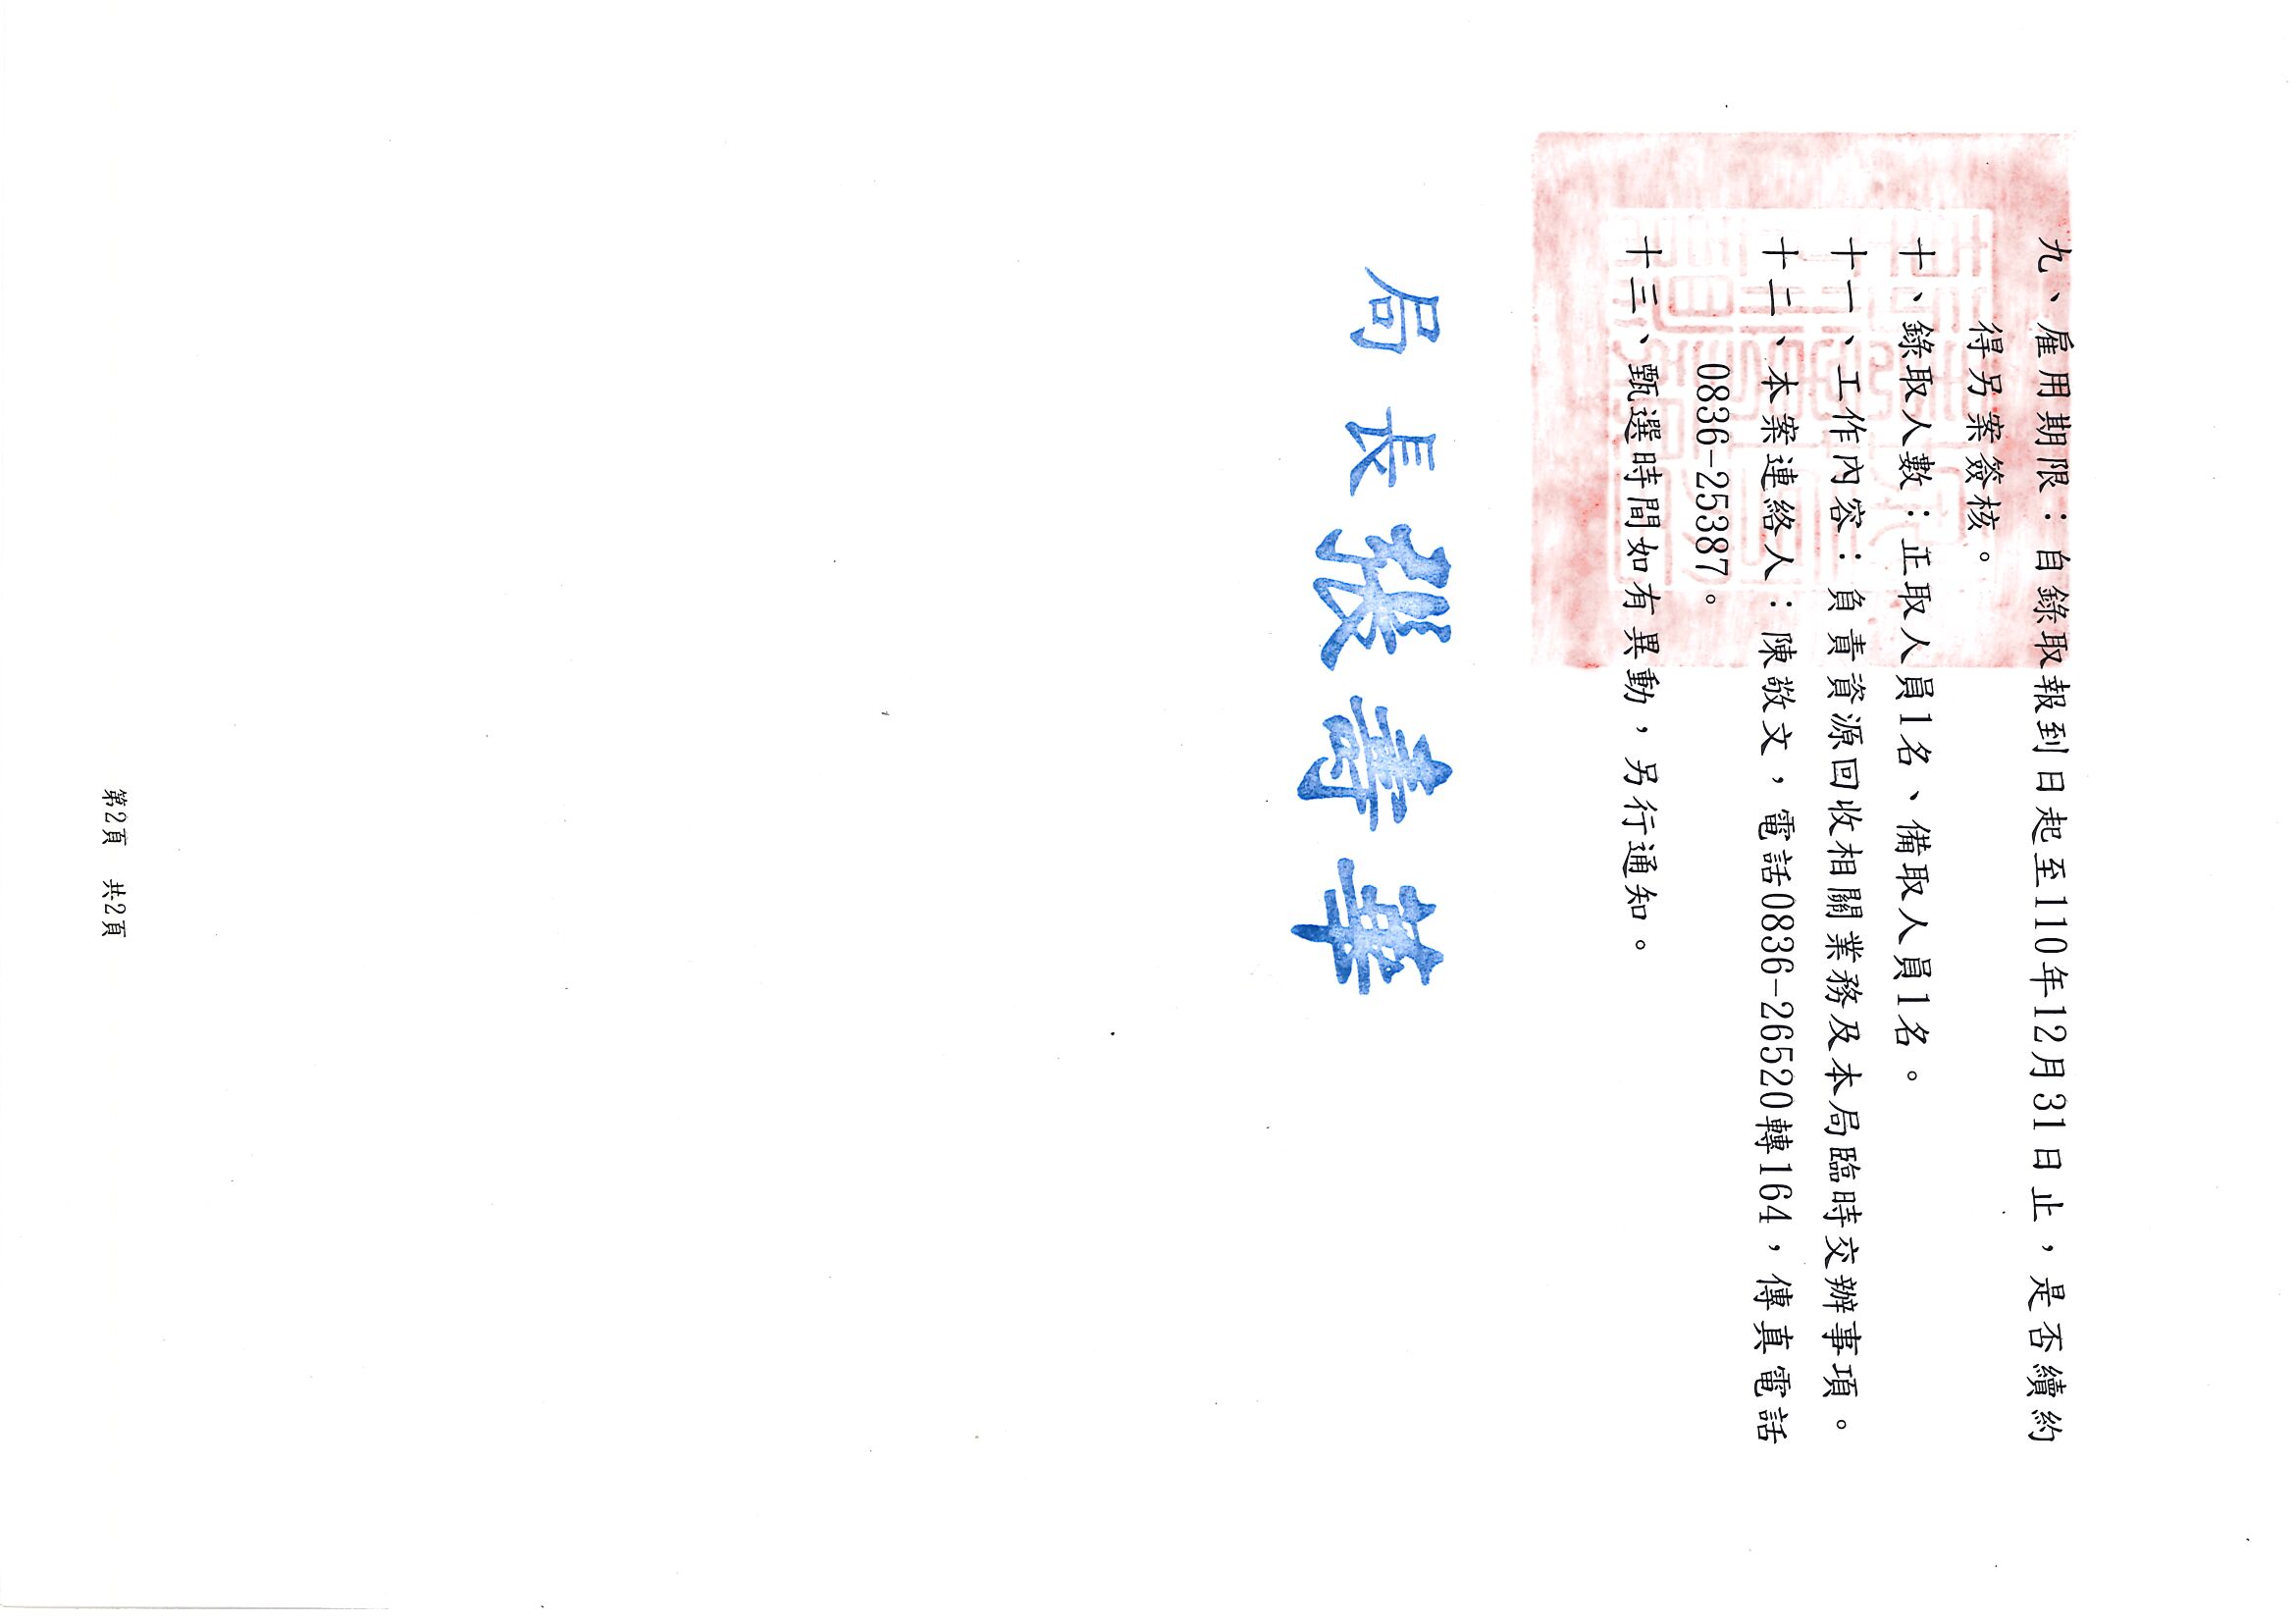 九、雇用期限：自錄取報到日起至110年12月31日止，是否續約
得另案簽核。
十、錄取人數：正取人員1名、備取人員1名。
十一、工作內容：負責資源回收相關業務及本局臨時交辦事項。
十二、本案連絡人：陳敬文，電話0836-26520轉164，傳真電話
0836-25387。
十三、甄選時間如有異動，另行通知。
局長張壽華
第2頁 共2頁